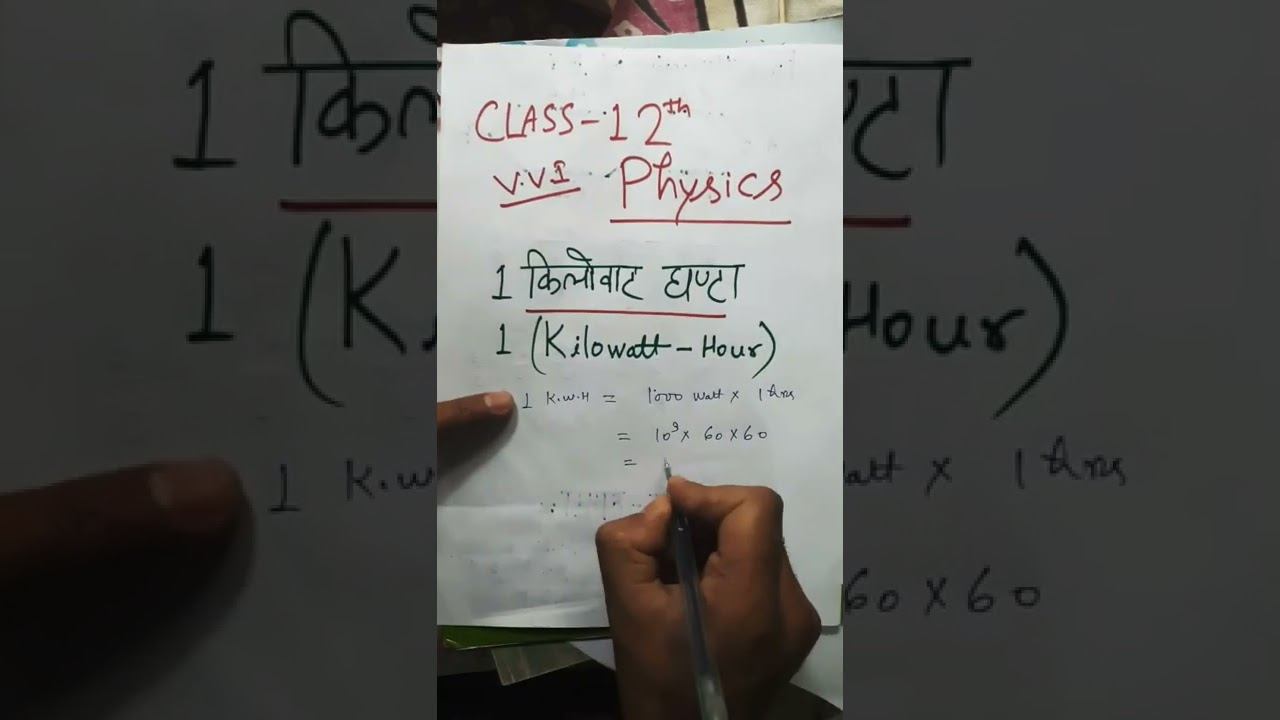 CLASS-12th
V.V.I Physics
1 किलोवाट घण्टा
1 (Kilowatt-Hour)
1 K.W.H = 1000 watt × 1 hrs
= 10³ × 60 × 60
=